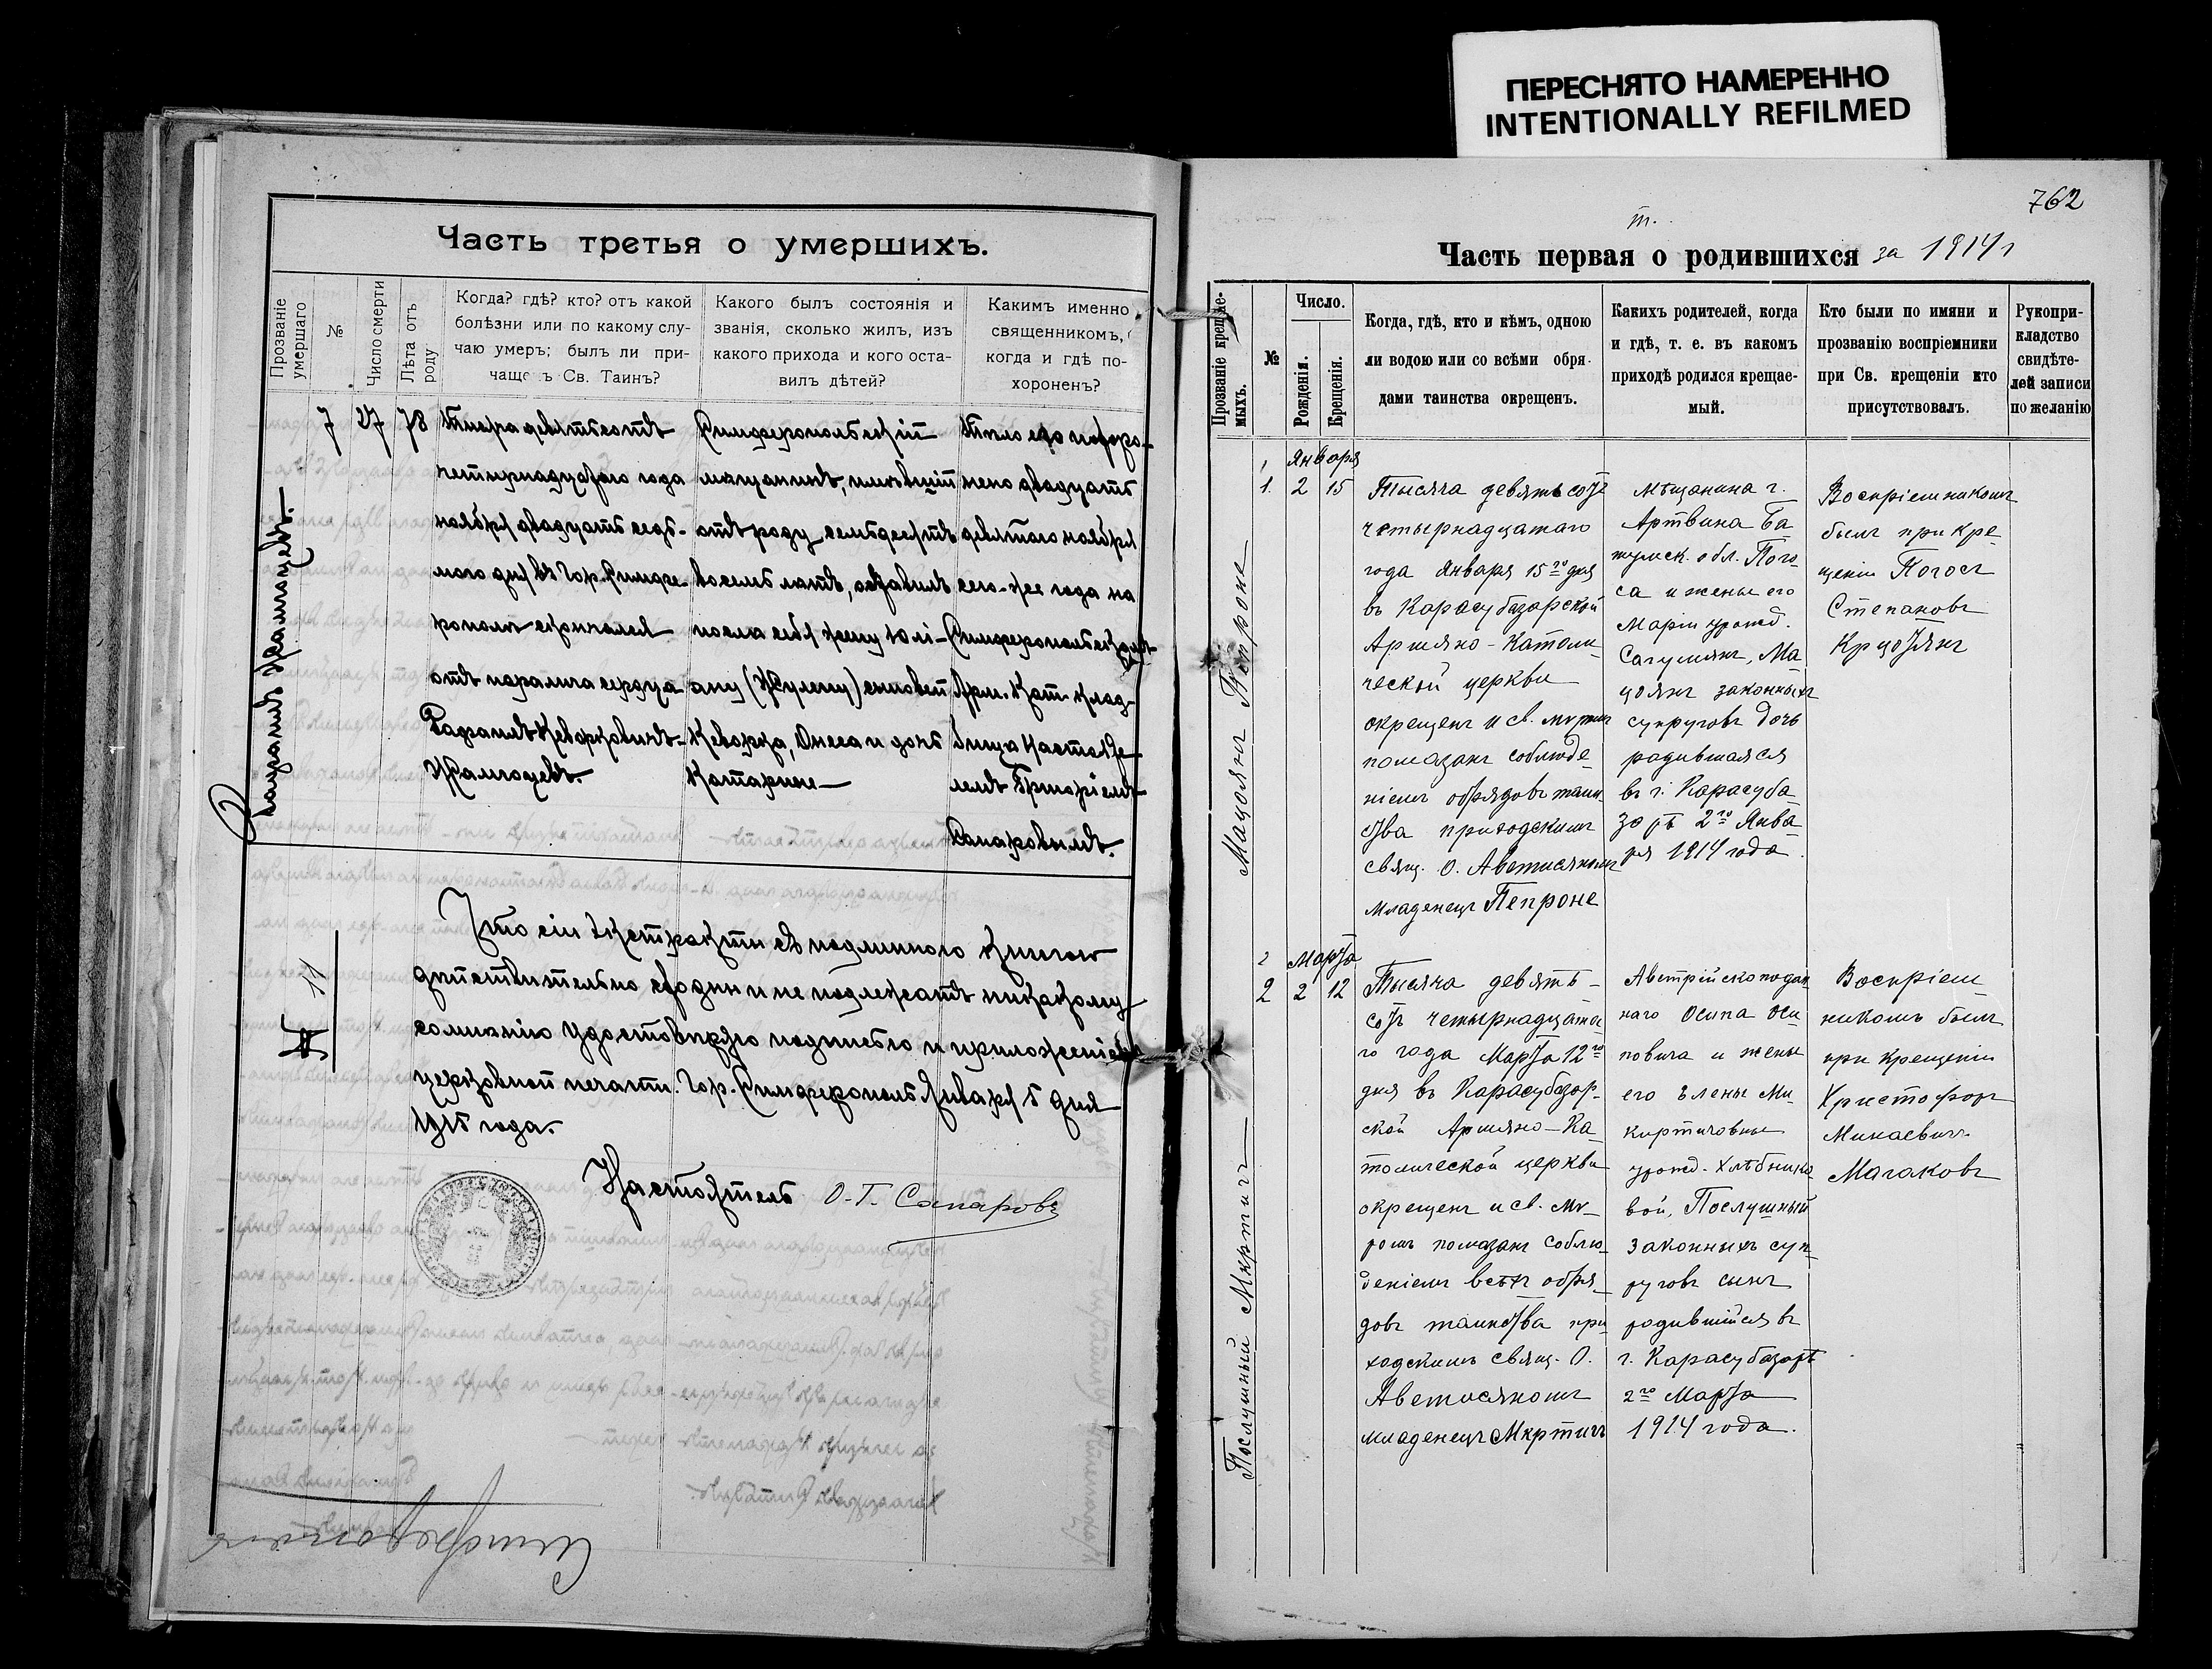 ПЕРЕСНЯТО НАМЕРЕННО
INTENTIONALLY REFILMED
Часть третья о умершихъ.
Прозваніе умершаго
№
Число смерти
Лѣта отъ роду
Когда? гдѣ? кто? отъ какой
болѣзни или по какому слу-
чаю умеръ; былъ ли при-
Св. Таинъ?
Какого былъ состоянія и
званія, сколько жилъ, изъ
какого прихода и кого оста-
вилъ дѣтей?
Какимъ именно
священникомъ,
когда и гдѣ по-
хороненъ?
7
27
78
четырнадцатаго года
ноября двадцать седь-
мого дня въ Гор. Симфе-
рополѣ скончался
отъ паралича сердца
Симферопольскій
мѣщанинъ, имѣвшій
отъ роду семьдесятъ
восемь лѣтъ, оставилъ
послѣ себя жену Юлі-
сыновей
Кеворка, Онеса и дочь
Катарине
Тѣло его похоро-
нено двадцать
девятого ноября
сего-же года на
Симферопольскомъ
Арм. Кат. клад-
бищѣ Настояте-
лемъ Григоріемъ
Сапаровымъ.
№ 11
Что сіи экстракты съ подлинного книгою
дѣйствительно сходны и не подлежатъ никакому
сомнѣнію удостовѣряю подписью и приложеніемъ
церковной печати. Гор. Симферополь Января 5 дня
1915 года.
Настоятель О. Г. Сапаровъ
762
Часть первая о родившихся за 1914 г
Прозваніе крещаемыхъ.
№
Число.
Рожденія.
Крещенія.
Когда, гдѣ, кто и кѣмъ, одною
ли водою или со всѣми обря-
дами таинства окрещенъ.
Какихъ родителей, когда
и гдѣ, т. е. въ какомъ
приходѣ родился крещае-
мый.
Кто были по имяни и
прозванію воспріемники
при Св. крещеніи кто
присутствовалъ.
Рукопри-
кладство
свидѣте-
лей записи
по желанію
Мацоянъ Пепроне
Января
1. 2 15
Тысяча девятьсотъ
четырнадцатаго
года Января 15го дня
въ Карасубазарской
Армяно-Католи-
ческой церкви
окрещенъ и св. мѵромъ
помазанъ соблюде-
ніемъ обрядовъ таин-
ства приходскимъ
свящ. О. Аветисяномъ
младенецъ Пепроне
Мѣщанина г.
Артвина Ба-
тумск. обл. Пого-
са и жены его
Маріи урожд.
Ма-
цоянъ законныхъ
супруговъ дочь
родившаяся
въ г. Карасуба-
зарѣ 2го Янва-
ря 1914 года.
Воспріемникомъ
былъ при кре-
щеніи Погосъ
Степановъ
Послушный Мкртичъ
2 Марта
2 2 12
Тысяча девять-
сотъ четырнадцата-
го года Марта 12го
дня въ Карасубазар-
ской Армяно-Ка-
толической церкви
окрещенъ и св. мѵ-
ромъ помазанъ соблю-
деніемъ всѣхъ обря-
довъ таинства при-
ходскимъ свящ. О.
Аветисяномъ
младенецъ Мкртичъ
Австрійскоподан-
наго Осипа Оси-
повича и жены
его Елены Ми-
киртичовны
урожд. Хлѣбнико-
вой, Послушный
законныхъ суп-
руговъ сынъ
родившійся въ
г. Карасубазарѣ
2го Марта
1914 года.
Воспріем-
никомъ былъ
при крещеніи
Христофоръ
Минаевичъ
Магаковъ